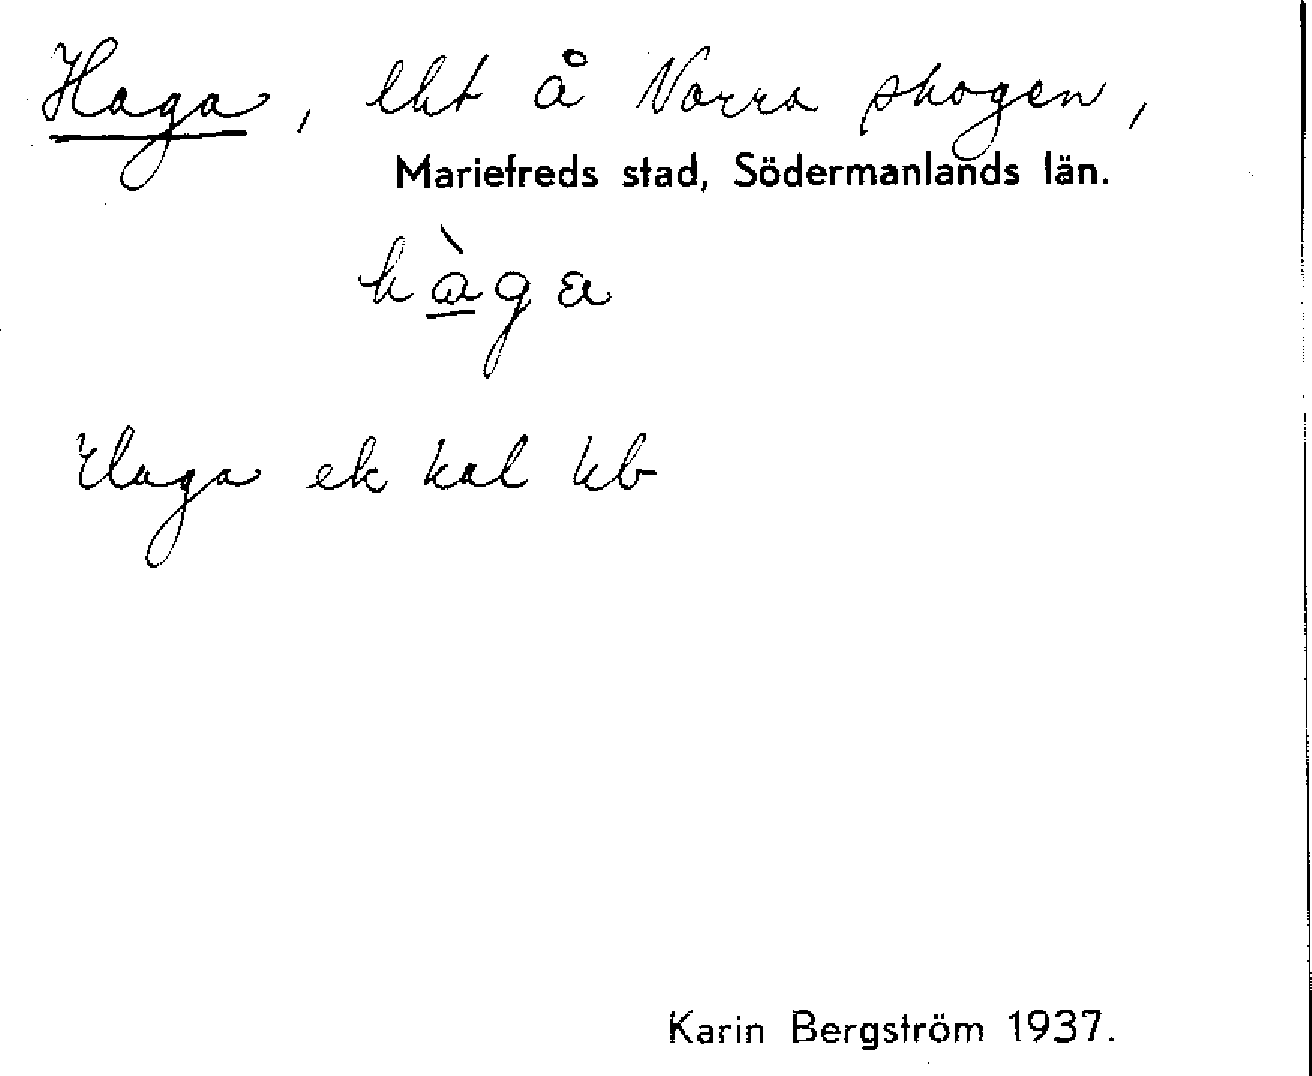 Haga, lht å Norra skogen,
Mariefreds stad, Södermanlands län.
hàga
Haga ek kal kb
Karin Bergström 1937.